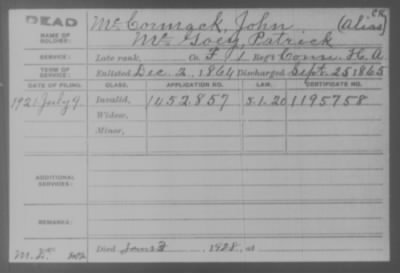 DEAD
NAME OF SOLDIER:
McCormack, John (Alias)
Patrick
SERVICE: Late rank, Co. F 1 Reg't Conn. H. A.
TERM OF SERVICE: Enlisted Dec. 2, 1864 Discharged Sept. 25 1865
DATE OF FILING. CLASS. APPLICATION NO. LAW. CERTIFICATE NO.
1921 July 9 Invalid, 1452857 5.1.20 1195758
Widow,
Minor,
ADDITIONAL SERVICES:
REMARKS:
Died 1928, at